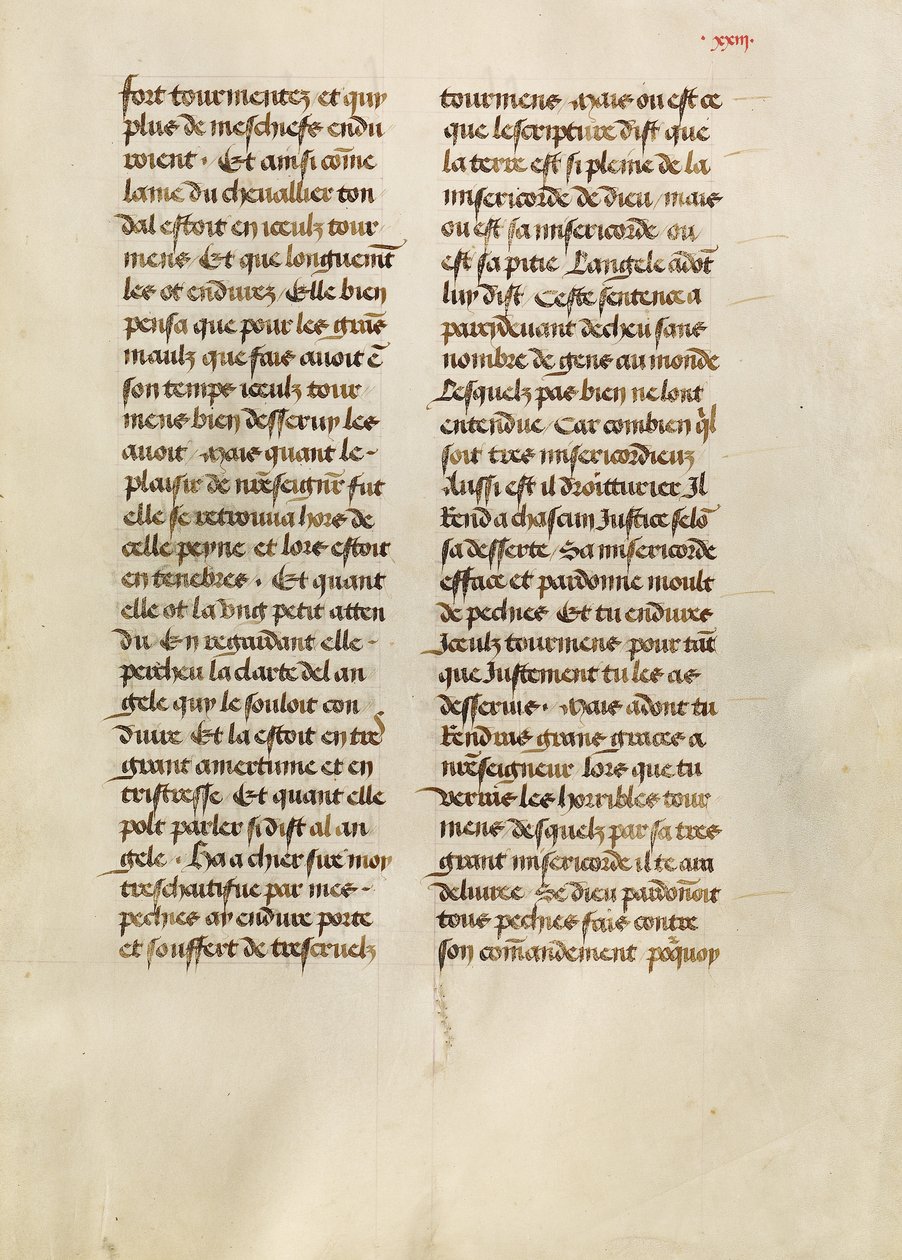 · xxiij ·
fort tourmentez et quy
plus de meschiefz endu
roient · Et ainsi co̅me
lame du chevallier ton
dal estoit en iceulz tour
mens / Et que longueme̅t
les ot endurez / Elle bien
pensa que pour les gra̅s
maulz que fais auoit e̅
son temps iceulz tour
mens bien desseruy les
auoit / Mais quant le -
plaisir de nr̅eseign̅r fut
elle se retrouua hors de
celle peyne et lors estoit
en tenebres · Et quant
elle ot la vng petit atten
du En regardant elle -
percheu la clarte del an
gele quy le souloit con
duire Et la estoit en tres
grant amertume et en
tristresse / Et quant elle
polt parler si dist al an
gele · Ha a chier sire moy
treschaitifue par mes -
pechies ay endure porte
et souffert de trescruelz
tourmens / Mais ou est ce
que lescripture dist que
la terre est si pleine de la
misericorde de dieu / mais
ou est sa misericorde ou
est sa pitie / Langele ado̅t
luy dist / Ceste sentence a
pareydeuant decheu sans
nombre de gens au monde
Lesquelz pas bien ne lont
entendue / Car combien q̇l
soit tres misericordieuz
Aussi est il droitturier Il
Rend a chascun Justice selo̅
sa desserte / Sa misericorde
efface et pardonne moult
de pechies Et tu endures
Iceulz tourmens pour ta̅t
que Justement tu les as
desseruis · Mais adont tu
Rendras grans graces a
nr̅eseigneur lors que tu
verras les horribles tour
mens desquelz par sa tres
grant misericorde il te aura
deliuree / Se dieu pardon̅oit
tous pechies fais contre
son com̅andement poꝛquoy